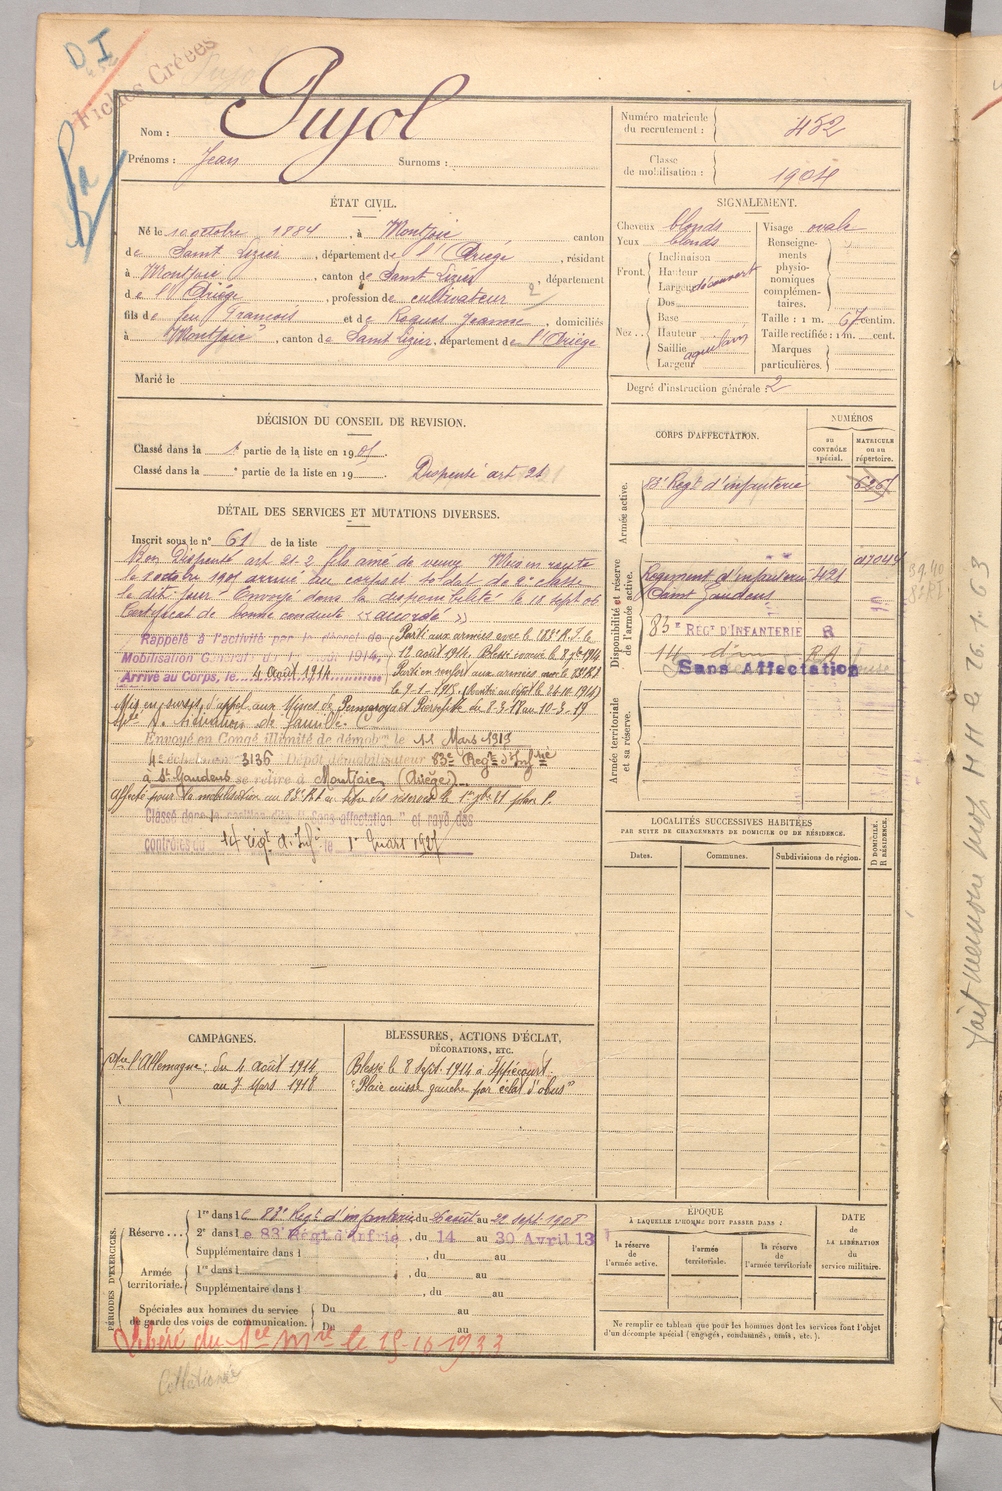 D I
Fiches Créées
Nom : Pujol
Prénoms : Jean Surnoms :
Numéro matricule du recrutement : 452
Classe de mobilisation : 1904
ÉTAT CIVIL.
Né le 10 octobre 1884, à Montjoie canton
de Saint Lizier, département de l'Ariège, résidant
à Montjoie, canton de Saint Lizier, département
de l'Ariège, profession de cultivateur 2
fils de feu François et de Roques Jeanne, domiciliés
à Montjoie, canton de Saint Lizier, département de l'Ariège
Marié le
SIGNALEMENT.
Cheveux blonds
Yeux blonds
Front. Inclinaison
Hauteur
Largeur découvert
Nez.. Dos
Base
Hauteur
Saillie aquilin
Largeur
Visage ovale
Renseignements physionomiques complémentaires.
Taille : 1 m. 67 centim.
Taille rectifiée : 1 m. cent.
Marques particulières.
Degré d'instruction générale : 2
DÉCISION DU CONSEIL DE REVISION.
Classé dans la 1 partie de la liste en 1905.
Classé dans la e partie de la liste en 19
Dispensé art 21
DÉTAIL DES SERVICES ET MUTATIONS DIVERSES.
Inscrit sous le n° 61 de la liste
Bon Dispensé art 21-2 fils aîné de veuve Mis en route
le 8 octobre 1905 arrivé au corps et soldat de 2e classe
le dit jour Envoyé dans la disponibilité le 18 sept 06
Certificat de bonne conduite « accordé »
Rappelé à l'activité par le décret de
Mobilisation Générale du 1er août 1914,
Arrivé au Corps, le 4 Août 1914
Parti aux armées avec le 283e R.I. le
12 août 1914. Blessé évacué le 8 7bre 1914
Parti en renfort aux armées avec le 83e R.I.
le 9-1-1915. (Rentré au dépôt le 24-10-1914)
Mis en sursis d'appel aux Mines de Pennaroya et Pierrefitte du 8-3-18 au 10-3-19
Envoyé en Congé illimité de démobon le 11 Mars 1919
4e échelon n° 3136 Dépôt démobilisateur 83e Regt d'Infrie
à St Gaudens se retire à Montjoie (Ariège)
Affecté pour la mobilisation au 83e R.I.
Classé dans la position dite "Sans affectation" et rayé des
contrôles du 14 régt d'Infie le 1er Mars 1927
CORPS D'AFFECTATION.
NUMÉROS
au contrôle spécial.
matricule ou au répertoire.
Armée active.
83e Régt d'infanterie
Disponibilité et réserve de l'armée active.
Régiment d'infanterie 421
Saint Gaudens
83e REGT D'INFANTERIE R
14 d'inf
Sans Affectation
Armée territoriale et sa réserve.
LOCALITÉS SUCCESSIVES HABITÉES
PAR SUITE DE CHANGEMENTS DE DOMICILE OU DE RÉSIDENCE.
Dates. Communes. Subdivisions de région. D DOMICILE. R RÉSIDENCE.
CAMPAGNES.
Ctre l'Allemagne : du 4 Août 1914
au 7 Mars 1918
BLESSURES, ACTIONS D'ÉCLAT,
DÉCORATIONS, ETC.
Blessé le 8 Sept. 1914 à Ippécourt
"Plaie cuisse gauche par éclat d'obus"
PÉRIODES D'EXERCICES.
Réserve... 1re dans le 83e Regt d'infanterie, du 2 août au 22 sept 1908
2e dans le 83 Régt d'Infrie, du 14 au 30 Avril 13
Supplémentaire dans l , du au
Armée territoriale. 1re dans l , du au
Supplémentaire dans l , du au
Spéciales aux hommes du service de garde des voies de communication. Du au
Du au
ÉPOQUE
À LAQUELLE L'HOMME DOIT PASSER DANS :
la réserve de l'armée active.
l'armée territoriale.
la réserve de l'armée territoriale
DATE DE LA LIBÉRATION du service militaire.
Ne remplir ce tableau que pour les hommes dont les services font l'objet
d'un décompte spécial (engagés, condamnés, omis, etc.).
Libéré du Sce Mre le 15-10-1933
Collationné
fait
26.1.63